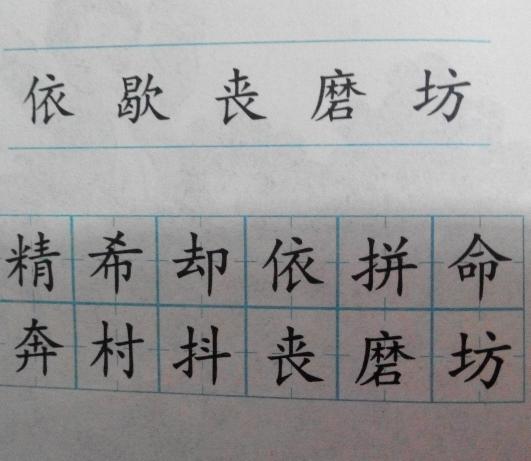 依歇丧磨坊
精希却依拼命
奔村抖丧磨坊